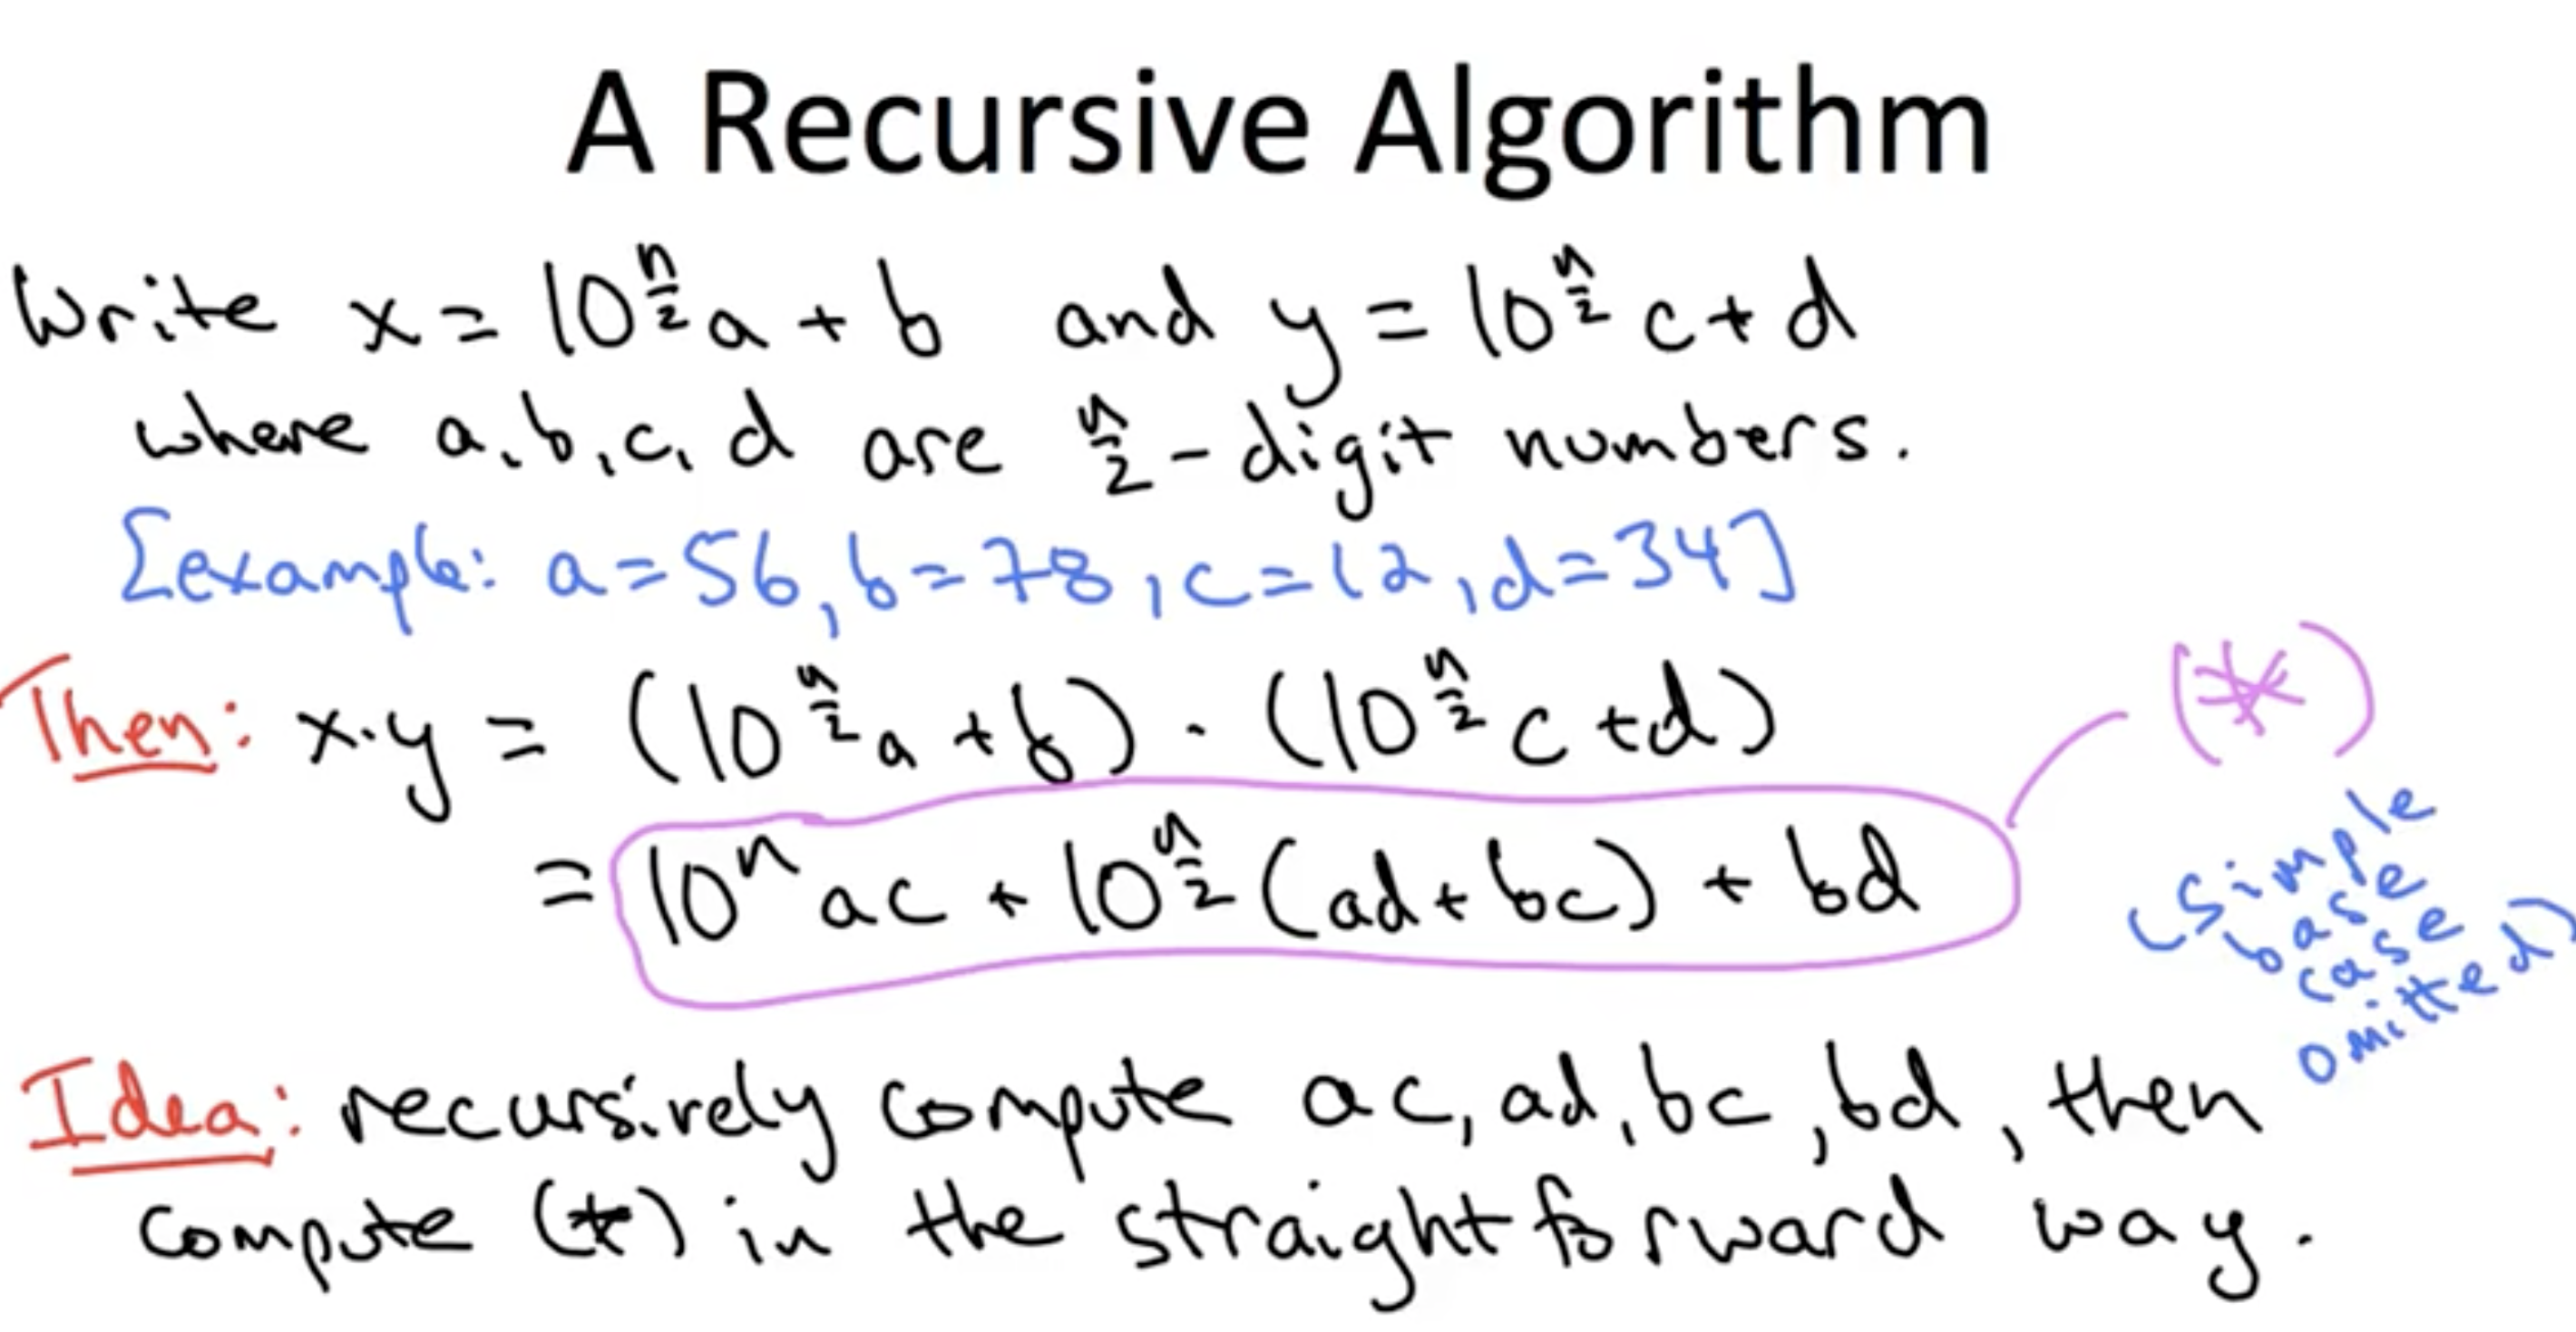 A Recursive Algorithm
Write x = 10^(n/2) a + b and y = 10^(n/2) c + d
where a, b, c, d are n/2 - digit numbers.
[example: a=56, b=78, c=12, d=34]
Then: x.y = (10^(n/2) a + b) . (10^(n/2) c + d)
(*)
= 10^n ac + 10^(n/2) (ad + bc) + bd
(simple
base
case
omitted)
Idea: recursively compute ac, ad, bc, bd, then
compute (*) in the straightforward way.